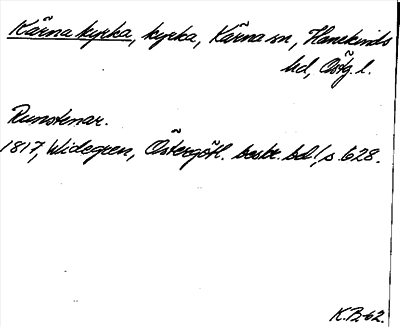 Kärna kyrka, kyrka, Kärna sn, Hanekinds
hd, Östg. l.
Runstenar.
1817, Widegren, Östergötl. beskr. bd 1, s. 628.
K.B-62.